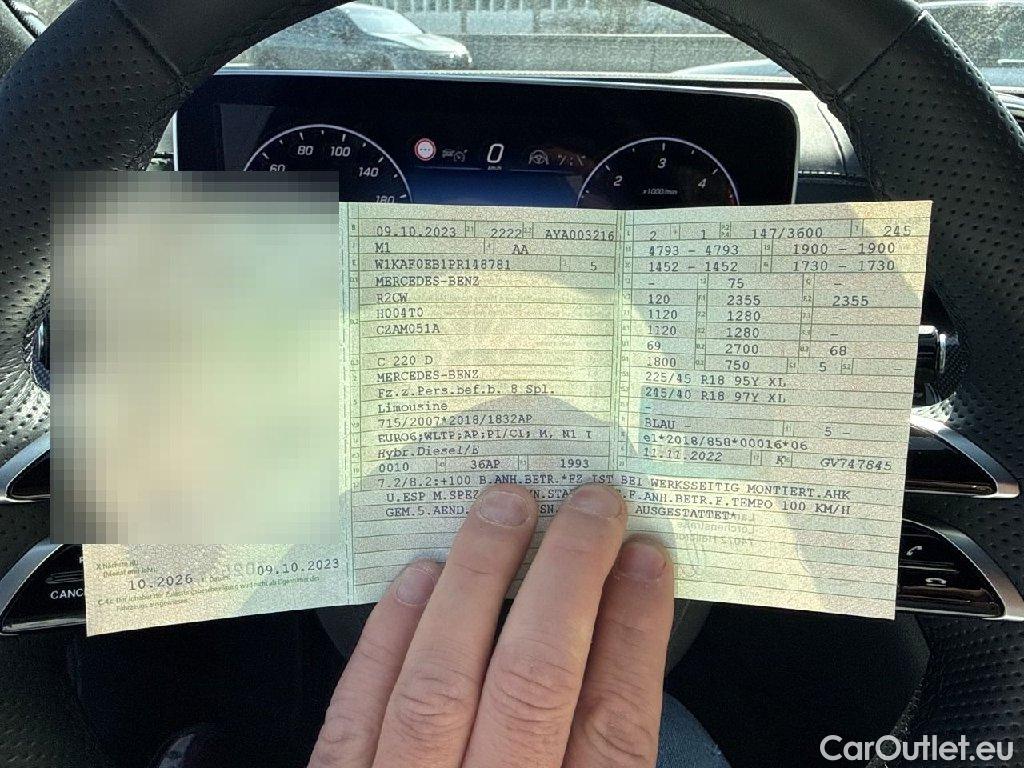 60 80 100 140 180
0
km/h
2 3 4
x1000/min
09.10.2023 2222 AYA003216
M1 AA
W1KAF0EB1PR148781 5
MERCEDES-BENZ
R2CW
H004T0
C2AM051A
C 220 D
MERCEDES-BENZ
Fz.z.Pers.bef.b. 8 Spl.
Limousine
715/2007*2018/1832AP
EURO6;WLTP;AP;PI/CI; M, N1 I
Hybr.Diesel/E
0010 36AP 1993
2 1 147/3600 245
4793 - 4793 1900 - 1900
1452 - 1452 1730 - 1730
- 75 -
120 2355 2355
1120 1280
1120 1280 -
69 2700 68
1800 750 5
225/45 R18 95Y XL
245/40 R18 97Y XL
-
BLAU - 5 -
e1*2018/858*00016*06
11.11.2022 K GV747845
7.2/8.2:+100 B.ANH.BETR.*FZ IST BEI WERKSSEITIG MONTIERT.AHK
U.ESP M.SPEZ. F.ANH.BETR.F.TEMPO 100 KM/H
GEM.5.AEND. AUSGESTATTET*
10.2026 09.10.2023
CANC
CarOutlet.eu